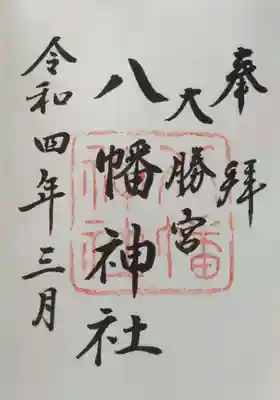 奉拝
大勝宮
八幡神社
令和四年三月
八幡神社